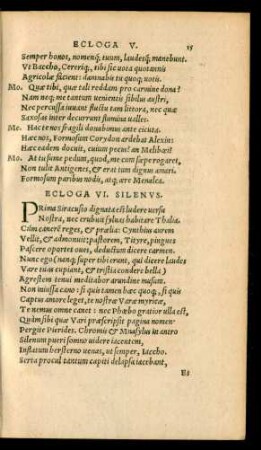 ECLOGA V. 15
Semper honos, nomenq; tuum, laudesq; manebunt.
Vt Baccho, Cereriq;, tibi sic uota quotannis
Agricolæ facient: damnabis tu quoq; uotis.
Mo. Quæ tibi, quæ tali reddam pro carmine dona?
Nam neq; me tantum uenientis sibilus austri,
Nec percussa iuuant fluctu tam littora, nec quæ
Saxosas inter decurrunt flumina ualles.
Me. Hac te nos fragili donabimus ante cicuta.
Hæc nos, Formosum Corydon ardebat Alexin:
Hæc eadem docuit, cuium pecus? an Melibœi?
Mo. At tu sume pedum, quod, me cum sæpe rogaret,
Non tulit Antigenes, & erat tum dignus amari.
Formosum paribus nodis, atq; ære Menalca.
ECLOGA VI. SILENVS.
PRima Siracusio dignata est ludere uersu
Nostra, nec erubuit syluas habitare Thalia.
Cùm canerē reges, & prælia: Cynthius aurem
Vellit, & admonuit: pastorem, Tityre, pingues
Pascere oportet oues, deductum dicere carmen.
Nunc ego (namq; super tibi erunt, qui dicere laudes
Vare tuas cupiant, & tristia condere bella)
Agrestem tenui meditabor arundine musam.
Non iniussa cano: si quis tamen hæc quoq;, si quis
Captus amore leget, te nostræ Vare myricæ,
Te nemus omne canet: nec Phœbo gratior ulla est,
Quàm sibi quæ Vari præscripsit pagina nomen.
Pergite Pierides. Chromis & Mnasylus in antro
Silenum pueri somno uidere iacentem,
Inflatum hesterno uenas, ut semper, Iaccho.
Serta procul tantum capiti delapsa iacebant,
Et